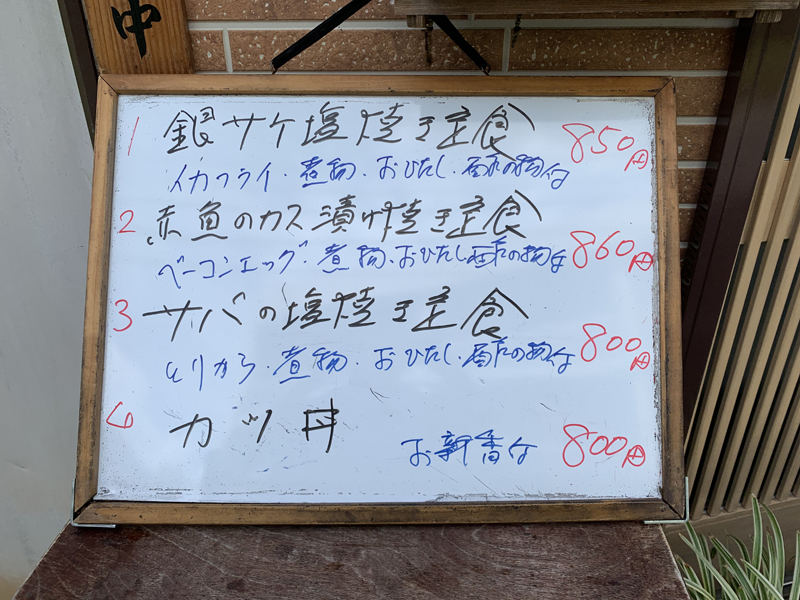 中
1 銀サケ塩焼き定食 850円
イカフライ・煮物・おひたし・酢の物付
2 赤魚のカス漬け焼き定食 860円
ベーコンエッグ・煮物・おひたし・酢の物付
3 サバの塩焼き定食 800円
とりから・煮物・おひたし・酢の物付
4 カツ丼
お新香付 800円